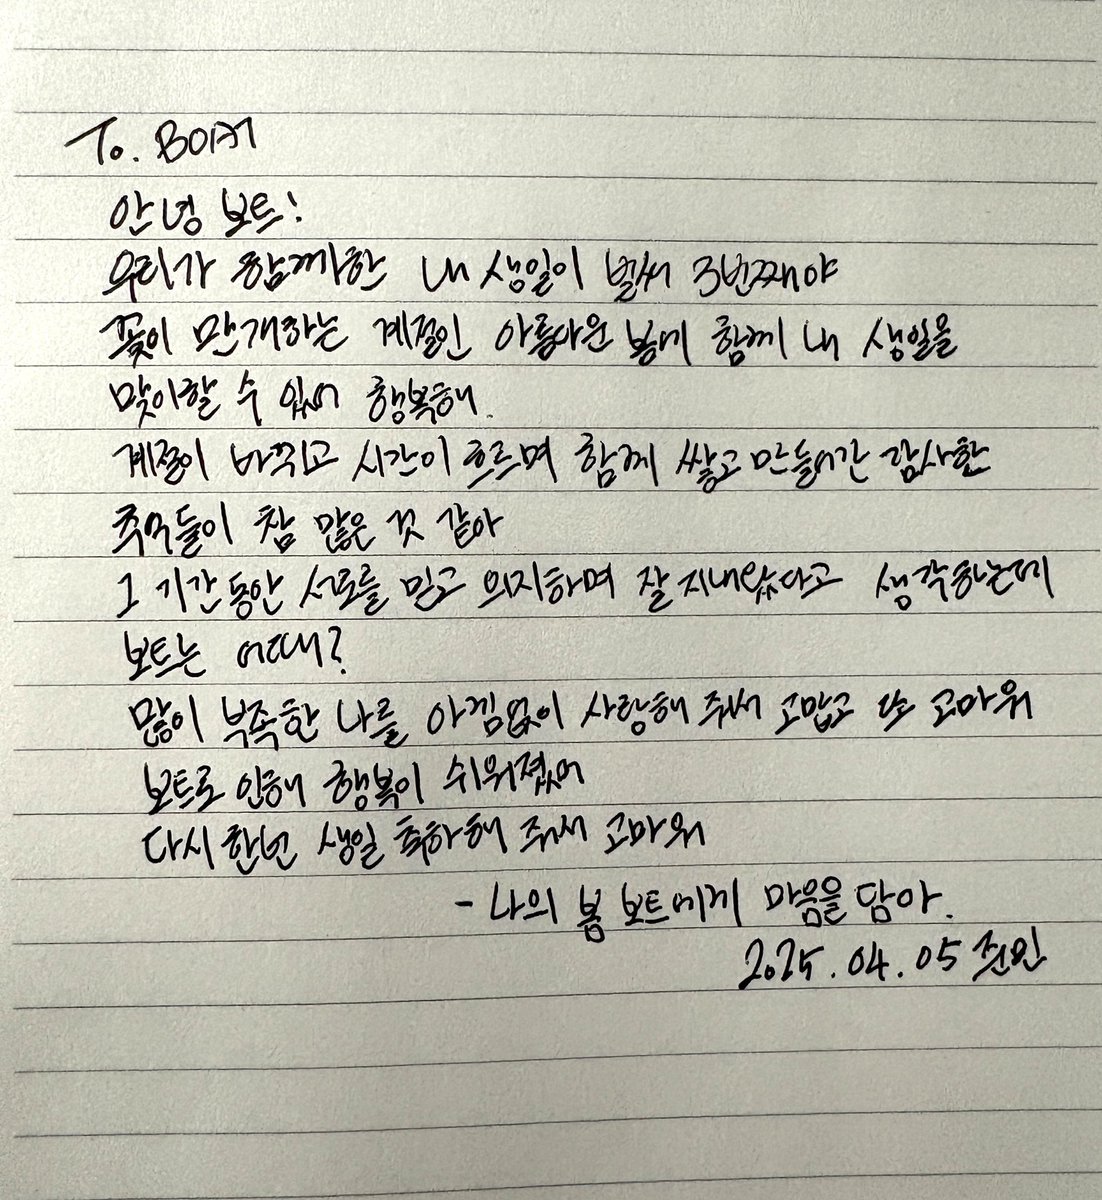 To. BOAT
안녕 보트!
우리가 함께한 내 생일이 벌써 3번째야
꽃이 만개하는 계절인 아름다운 봄에 함께 내 생일을
맞이할 수 있어 행복해.
계절이 바뀌고 시간이 흐르며 함께 쌓고 만들어간 감사한
추억들이 참 많은 것 같아
그 기간동안 서로를 믿고 의지하며 잘 지내왔다고 생각하는데
보트는 어때?
많이 부족한 나를 아낌없이 사랑해 줘서 고맙고 또 고마워
보트로 인해 행복이 쉬워졌어
다시 한번 생일 축하해 줘서 고마워
- 나의 봄 보트에게 마음을 담아.
2025.04.05